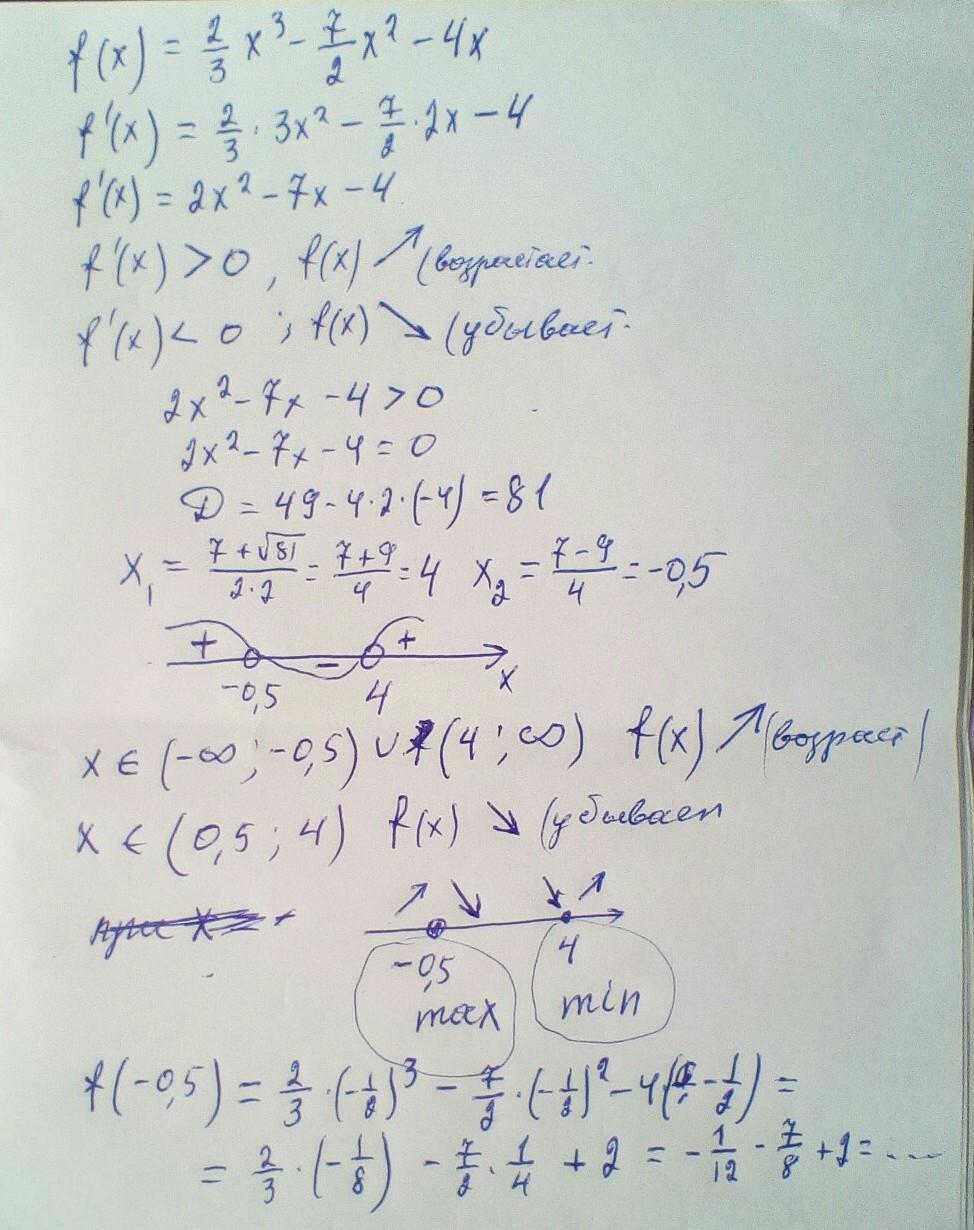 f(x) = 2/3 x³ - 7/2 x² - 4x
f'(x) = 2/3 · 3x² - 7/2 · 2x - 4
f'(x) = 2x² - 7x - 4
f'(x) > 0, f(x) ↗ (возрастает.
f'(x) < 0; f(x) ↘ (убывает.
2x² - 7x - 4 > 0
2x² - 7x - 4 = 0
D = 49 - 4·2·(-4) = 81
x₁ = (7+√81)/(2·2) = (7+9)/4 = 4 x₂ = (7-9)/4 = -0,5
+ - +
-0,5 4 x
x ∈ (-∞; -0,5) ∪ (4; ∞) f(x) ↗ (возраст)
x ∈ (0,5; 4) f(x) ↘ (убывает
↗ ↘ ↘ ↗
-0,5 4
max min
f(-0,5) = 2/3 · (-1/2)³ - 7/2 · (-1/2)² - 4(-1/2) =
= 2/3 · (-1/8) - 7/2 · 1/4 + 2 = -1/12 - 7/8 + 2 = ...